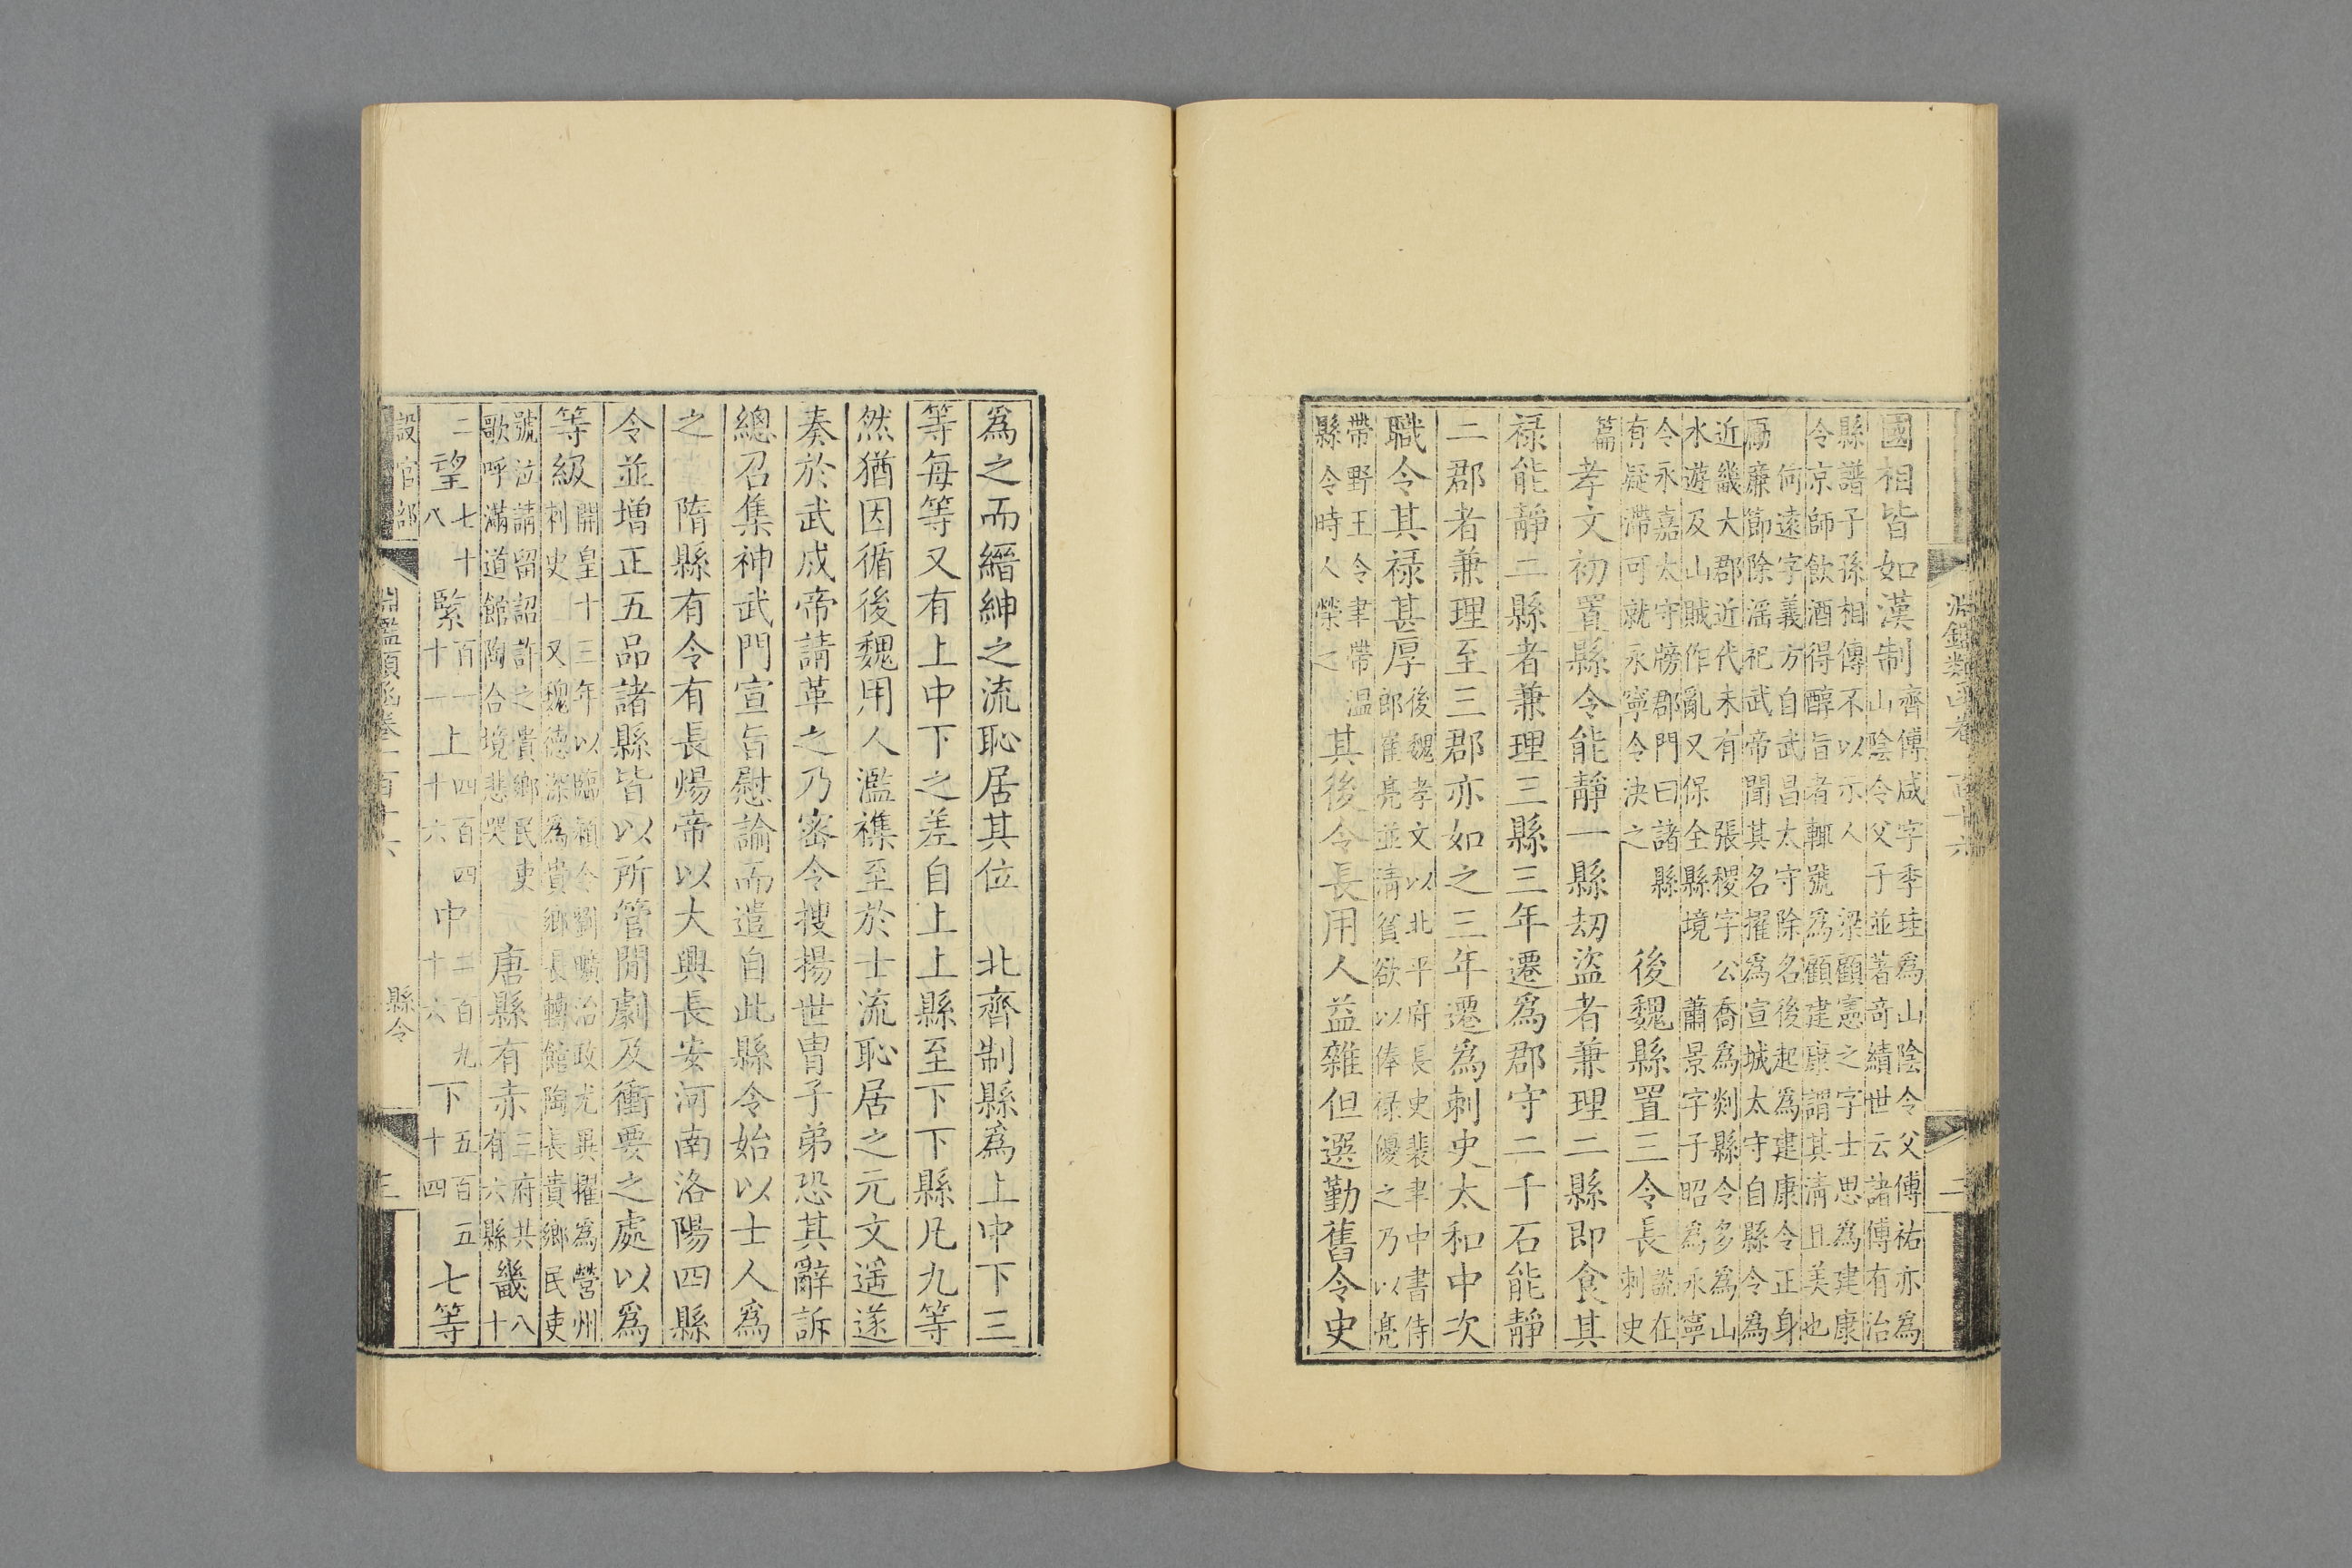 淵鑑類函卷一百十六
二
國相皆如漢制
齊傅咸字季珪爲山陰令父傅祐亦爲
山陰令父子並著奇績世云諸傅有治
縣譜子孫相傳不以示人　梁顧憲之字士思爲建康
令京師飲酒得醇旨者輒號爲顧建康謂其淸且美也
何遠字義方自武昌太守除名後起爲建康令正身
厲廉節除滛祀武帝聞其名擢爲宣城太守自縣令爲
近畿大郡近代未有　張稷字公喬爲剡縣令多爲山
水遊及山賊作亂又保全縣境　蕭景字子昭爲永寧
令永嘉太守牓郡門曰諸縣
有疑滯可就永寧令決之
後魏縣置三令長
說在
刺史
篇
孝文初置縣令能靜一縣刼盜者兼理二縣即食其
祿能靜二縣者兼理三縣三年遷爲郡守二千石能靜
二郡者兼理至三郡亦如之三年遷爲刺史太和中次
職令其祿甚厚
後魏孝文以北平府長史裴聿中書侍
郎崔亮並淸貧欲以俸祿優之乃以亮
帶野王令聿帶溫
縣令時人榮之
其後令長用人益雜但選勤舊令史
爲之而縉紳之流恥居其位　北齊制縣爲上中下三
等每等又有上中下之差自上上縣至下下縣凡九等
然猶因循後魏用人濫襍至於士流恥居之元文遥遂
奏於武成帝請革之乃密令搜揚世胄子弟恐其辭訴
總召集神武門宣旨慰諭而遣自此縣令始以士人爲
之　隋縣有令有長煬帝以大興長安河南洛陽四縣
令並增正五品諸縣皆以所管閒劇及衝要之處以爲
等級
開皇十三年以臨潁令劉曠治政尤異擢爲營州
刺史　又魏德深爲貴鄉長轉館陶長貴鄉民吏
號泣請留詔許之貴鄉民吏
歌呼滿道館陶合境悲哭
唐縣有赤
三府共
有六縣
畿
八
十
二
望
七十
八
緊
百一
十一
上
四百四
十六
中
二百九
十六
下
五百五
十四
七等
設官部
淵鑑類函卷一百十六
縣令
三